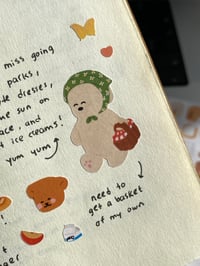 miss going
parks,
dresses,
sun on
ace, and
ice creams!
yum yum
need to
get a basket
of my own